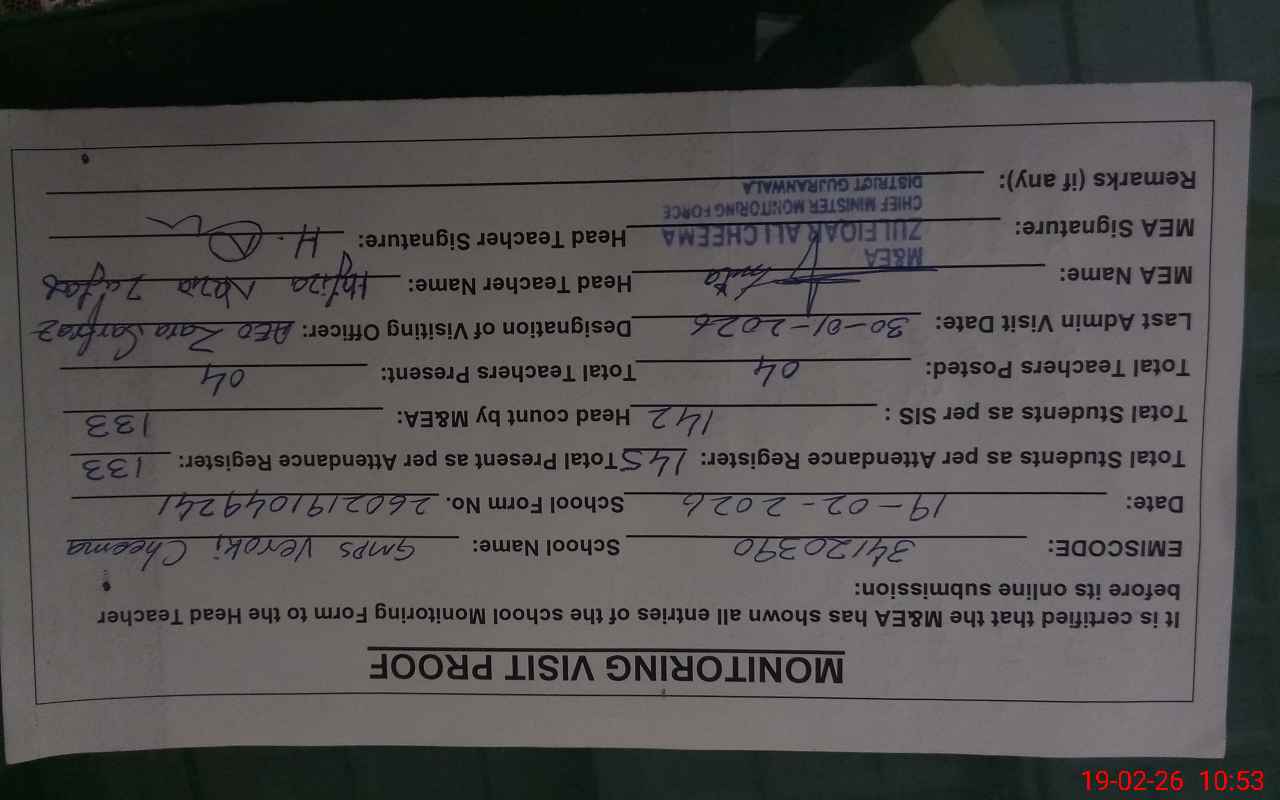 MONITORING VISIT PROOF
It is certified that the M&EA has shown all entries of the school Monitoring Form to the Head Teacher
before its online submission:
EMISCODE: 34120390 School Name: GMPS Veroki Cheema
Date: 19-02-2026 School Form No. 260219104924 1
Total Students as per Attendance Register: 145 Total Present as per Attendance Register: 133
Total Students as per SIS : 142 Head count by M&EA: 133
Total Teachers Posted: 04 Total Teachers Present: 04
Last Admin Visit Date: 30-01-2026 Designation of Visiting Officer: AEO Zara Sarfraz
MEA Name: Head Teacher Name: Hafiza Nazia Zafar
MEA Signature: Head Teacher Signature: H.
M&EA
ZULFIQAR ALI CHEEMA
CHIEF MINISTER MONITORING FORCE
DISTRICT GUJRANWALA
Remarks (if any):
19-02-26 10:53